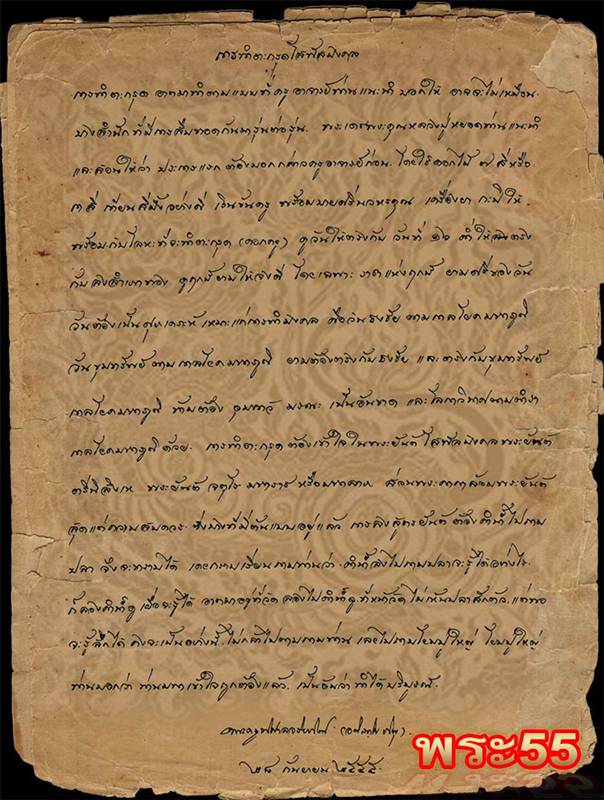 การทำตะกรุดโสฬสมงคล
การทำตะกรุด อาตมาทำตามแบบที่ครู อาจารย์ท่านแนะนำ บอกให้ อาจจะไม่เหมือน
บางสำนักที่มีการสืบทอดกันมารุ่นต่อรุ่น. พระเดชพระคุณหลวงปู่หยอดท่านแนะนำ
และสอนให้ว่า ประการแรก ต้องบอกกล่าวครูอาจารย์ก่อน. โดยใช้ดอกไม้ ๗ สี หรือ
๓ สี เทียนสีผึ้งอย่างดี เงินขันครู พร้อมบายศรี
พร้อมกับโลหะที่จะทำตะกรุด ดูวันให้ตรงกับ วันที่ ค่ำ
ฤกษ์ยามให้จงดี โดยเฉพาะ แห่งฤกษ์ ยาม ของวัน
วันต้องเป็น เหมาะแก่การทำมงคล คือวันธงชัย ตามกาลโยคมหาภูติ
วันขุมทรัพย์ ตามกาลโยคมหาภูติ ยามต้องตรงกับธงชัย และตรงกับขุมทรัพย์
กาลโยคมหาภูติ ห้ามต้อง อุบาทว์ มรณะ เป็นอันขาด และโลกาวินาศตามตำรา
กาลโยคมหาภูติด้วย. การทำตะกรุด ต้องเข้าใจในพระยันต์ โสฬสมงคล พระยันต์
ตรีนิสิงเห พระยันต์ จตุโร ส่วนพระคาถาล้อมพระยันต์
สุดแต่ความสมควร. ซึ่งบางที่มีต้นแบบอยู่แล้ว การลงสูตรยันต์ ต้องดำน้ำไปถาม
ปลา จึงจะทราบได้ เคยถามเรียนถามท่านว่า ดำน้ำลงไปถามปลาจะรู้ได้อย่างไร
ก็ลองดำน้ำดู เผื่อจะรู้ได้ อาตมาอยู่ที่วัด ลองไปดำน้ำดู ที่หน้าวัด ไม่เห็นปลาสักตัว. แต่พอ
จะรู้สึกได้ คงจะเป็นอย่างนี้. ไปถามท่าน และไปถามโยมปู่ใหญ่ โยมปู่ใหญ่
ท่านบอกว่า ท่านมหาเข้าใจถูกต้องแล้ว. เป็นอันว่า ทำได้บริบูรณ์.
๒๘ กันยายน ๒๕๕๕.
พระ55